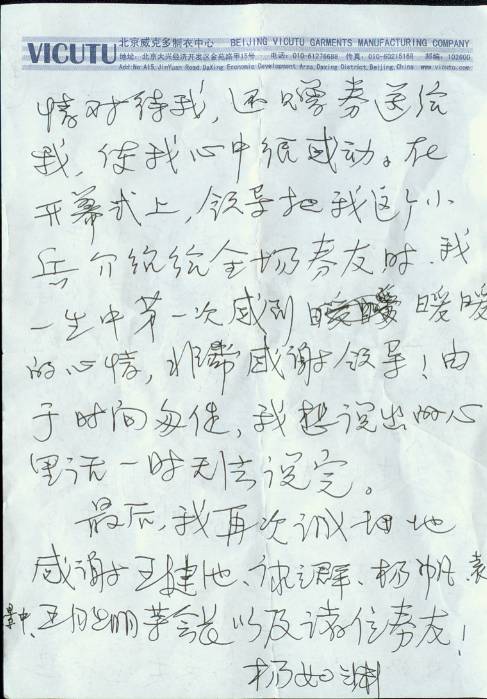 VICUTU 北京威克多制衣中心 BEIJING VICUTU GARMENTS MANUFACTURING COMPANY
地址：北京大兴经济开发区金苑路甲15号 电话：010-61276688 传真：010-60215168 邮编：102600
Add:No A15,JinYuan Road,DaXing Economic Development Area,Daxing District,Beijing,China www.vicutu.com
情对待我，还赠券送给
我，使我心中很感动。在
开幕式上，领导把我这个小
兵介绍给全场券友时，我
一生中第一次感到 暖暖
的心情，非常感谢领导！由
于时间匆促，我想说出的心
里话一时无法说完。
最后，我再次诚 地
感谢王健 、 群、杨帆、袁
中、王 丽 以及诸位券友！
杨如